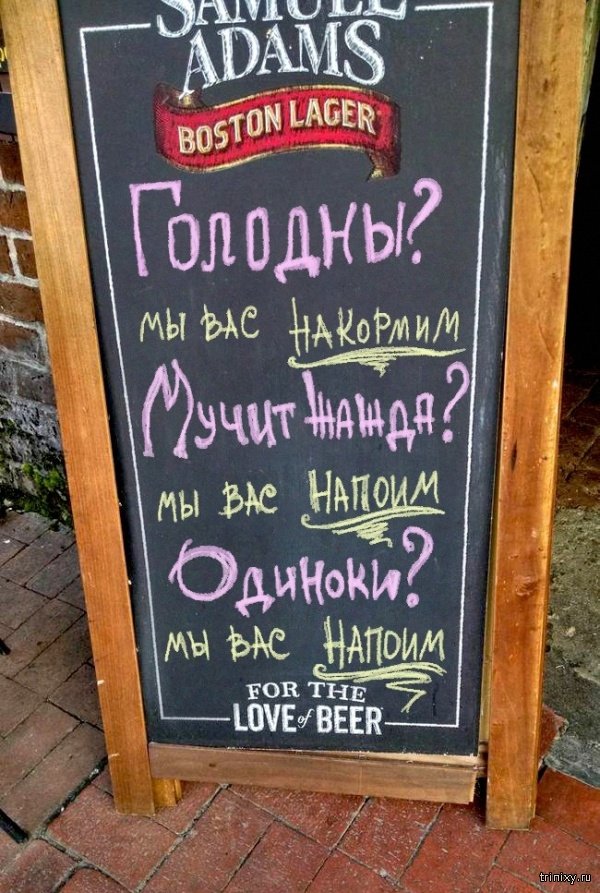 SAMUEL
ADAMS
BOSTON LAGER
Голодны?
мы вас накормим
Мучит жажда?
мы вас напоим
Одиноки?
мы вас напоим
FOR THE
LOVE of BEER
trinixy.ru